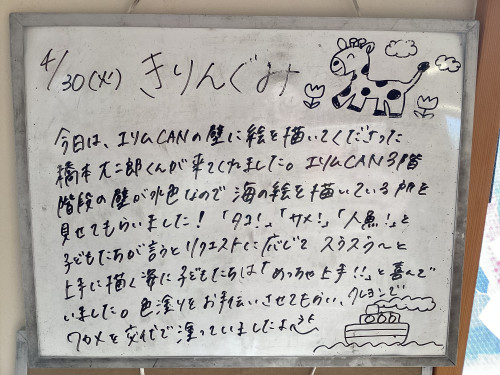 4/30(火) きりんぐみ
今日は、エリムCANの壁に絵を描いてくださった
橋本 大二郎くんが来てくれました。エリムCAN 3階
階段の壁が水色なので 海の絵を描いている所を
見せてもらいました！「タコ！」「サメ！」「人魚！」と
子どもたちが言うとリクエストに応じて スラスラ〜と
上手に描く姿に子どもたちは「めっちゃ上手!!」と喜んで
いました。色塗りをお手伝いさせてもらい、クレヨンで
ワカメを交代で塗っていましたよ